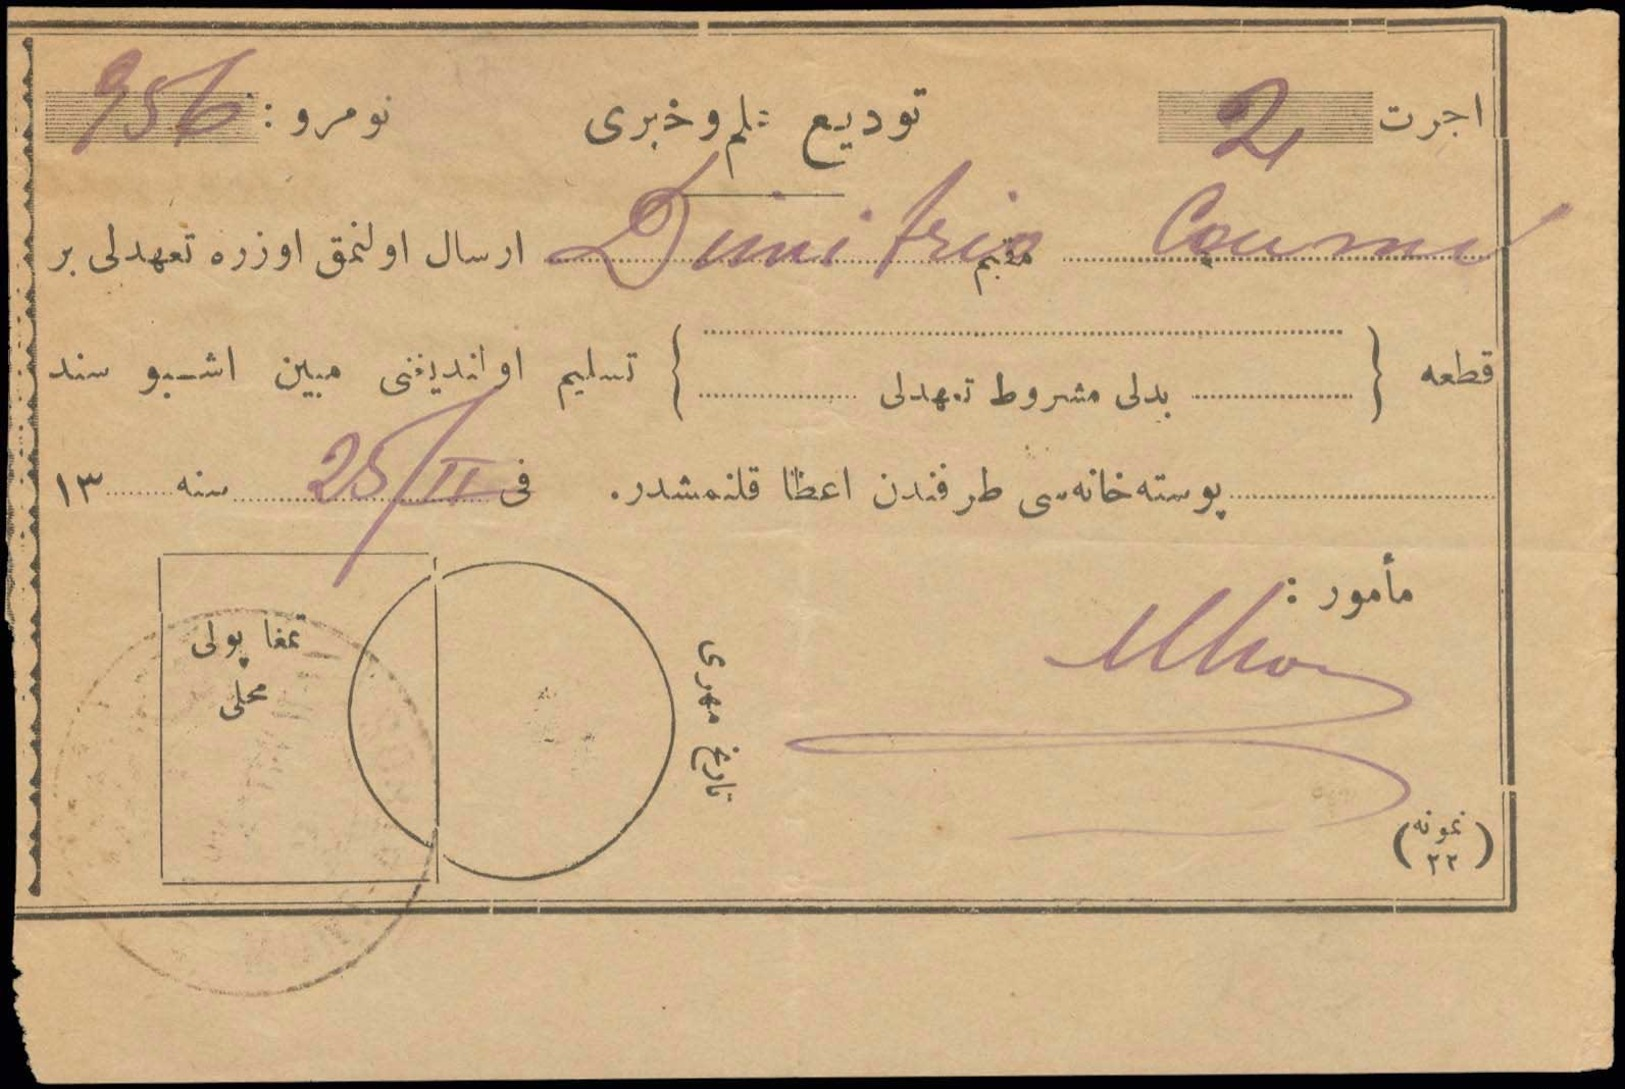 اجرت 2 توديع علم و خبری نومرو : 956
Dimitrio مقيم ارسال اولنمق اوزره تعهدلی بر
قطعه { بدلی مشروط تعهدلی } تسليم اولنديغنی مبين اشبو سند
پوسته‌خانه‌سی طرفندن اعطا قلنمشدر. فی 25/II سنه ١٣
مأمور :
تمغا پولی
محلی
تاريخ مهری
(نمونه
٢٢)